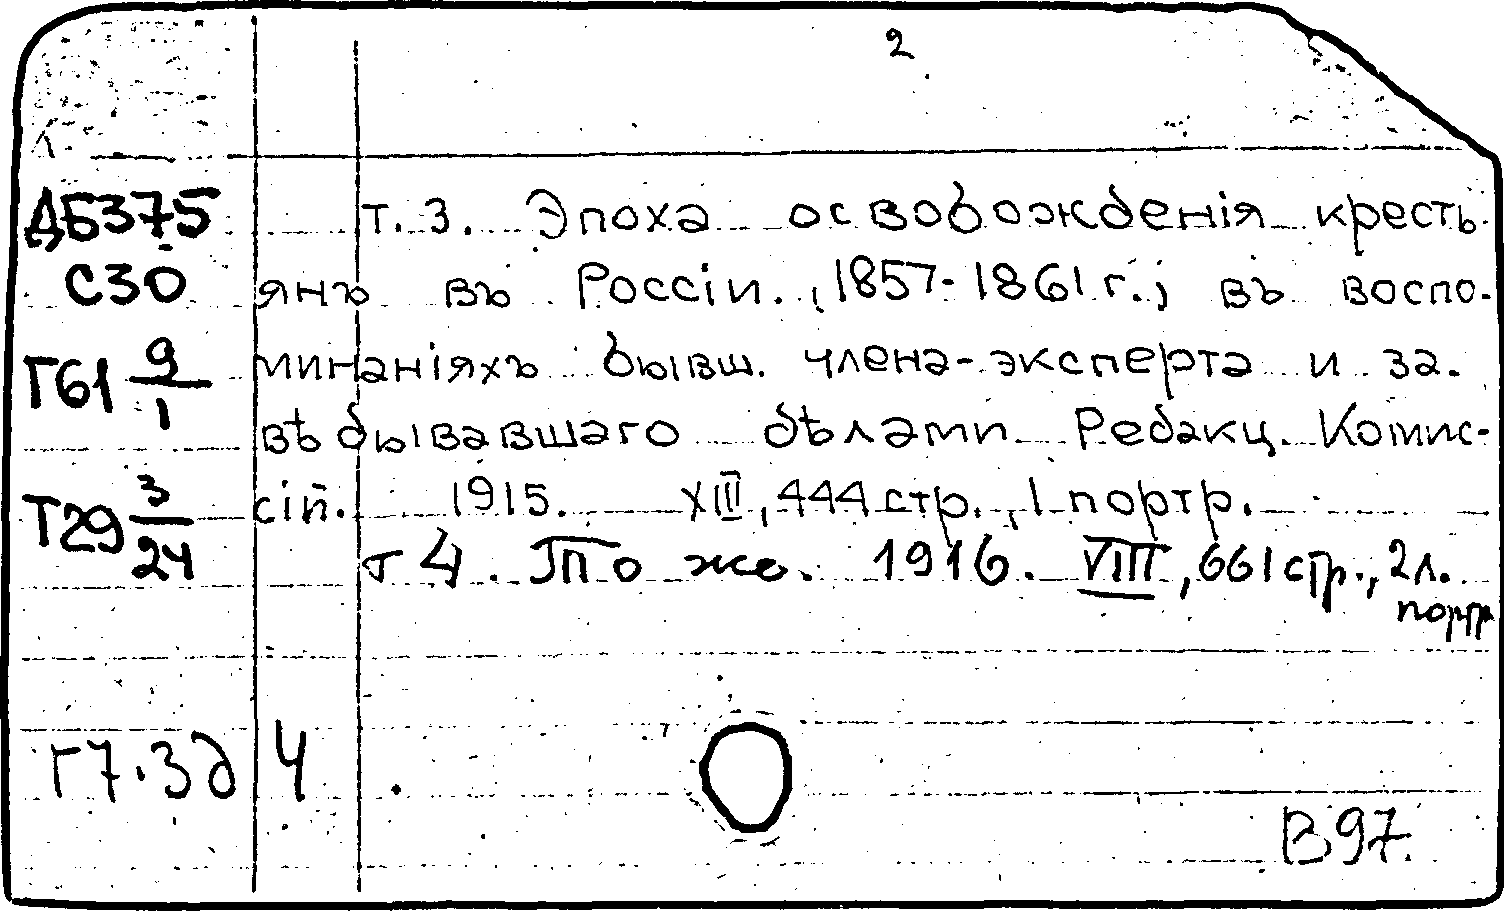 2
ДБ375
С30
Г61 9/1
Т29 3/24
Г7.3д 4
т. 3. Эпоха освобожденія кресть-
янъ въ Россіи., 1857-1861 г., въ воспо-
минаніяхъ бывш. члена-эксперта и за-
вѣдывавшаго дѣлами Редакц. Комис-
сій. 1915. XIII, 444 стр., 1 портр.
т 4. То же. 1916. VIII, 661 стр., 2 л.
портр
В97.